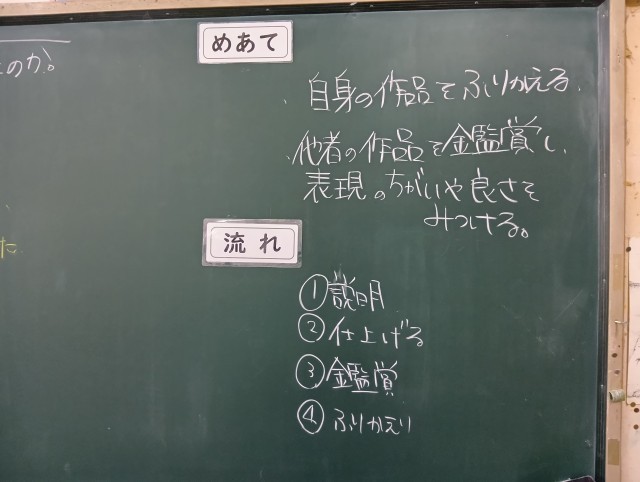 のか。
めあて
・自身の作品をふりかえる。
・他者の作品を金監賞し、
表現のちがいや良さを
みつける。
た
流れ
①説明
②仕上げる
③金監賞
④ふりかえり